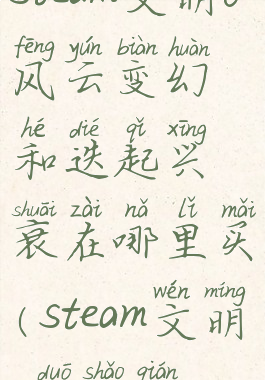 steam文明6
fēng yún biàn huàn
风云变幻
hé dié qǐ xīng
和迭起兴
shuāi zài nǎ lǐ mǎi
衰在哪里买
wén míng
(steam文明
duō shǎo qián